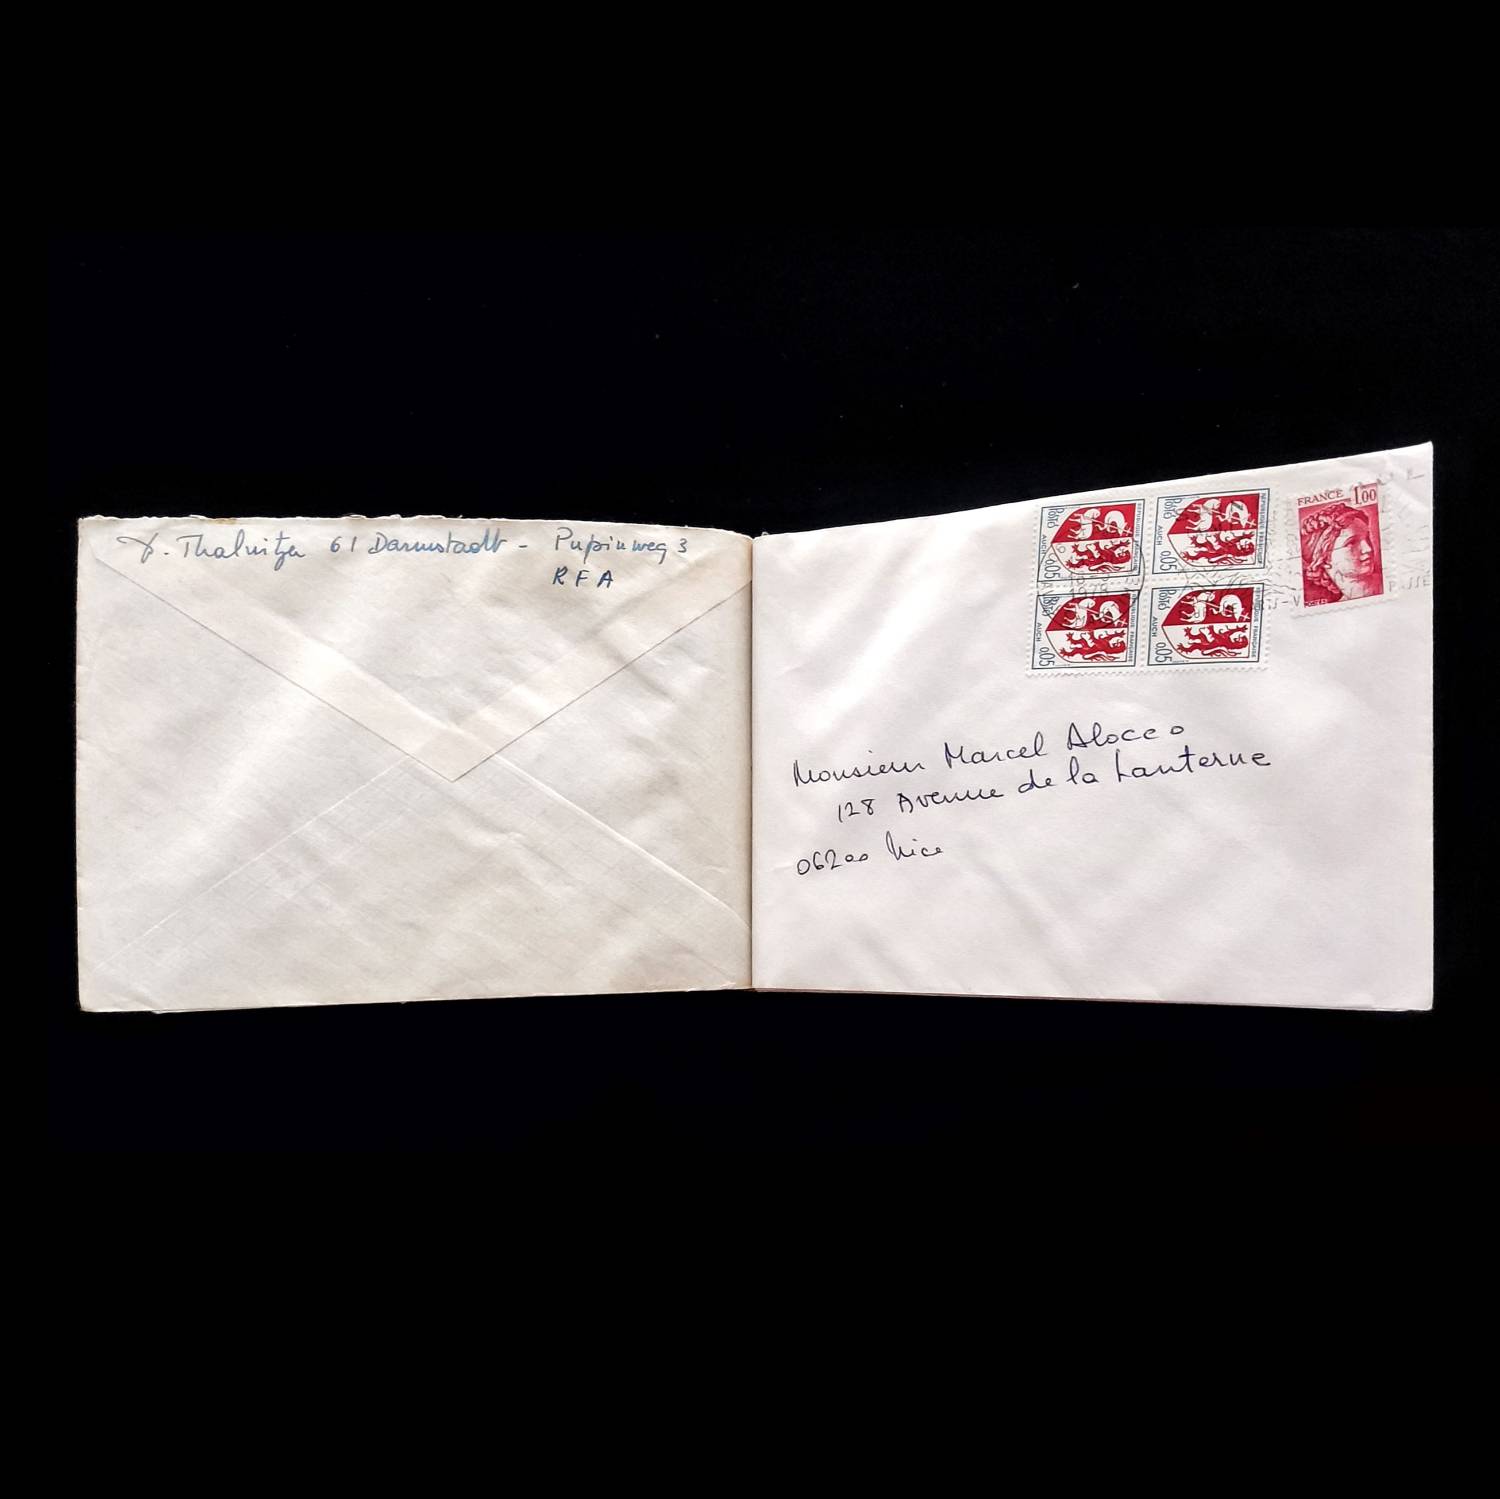 Thalnitza 61 Darmstadt - Pupinweg 3
RFA
FRANCE 1.00
POSTES
Postes
RÉPUBLIQUE FRANÇAISE
AUCH
0.05
Postes
RÉPUBLIQUE FRANÇAISE
AUCH
0.05
Postes
RÉPUBLIQUE FRANÇAISE
AUCH
0.05
Postes
RÉPUBLIQUE FRANÇAISE
AUCH
0.05
1978
Monsieur Marcel Alocco
128 Avenue de la Lanterne
06200 Nice